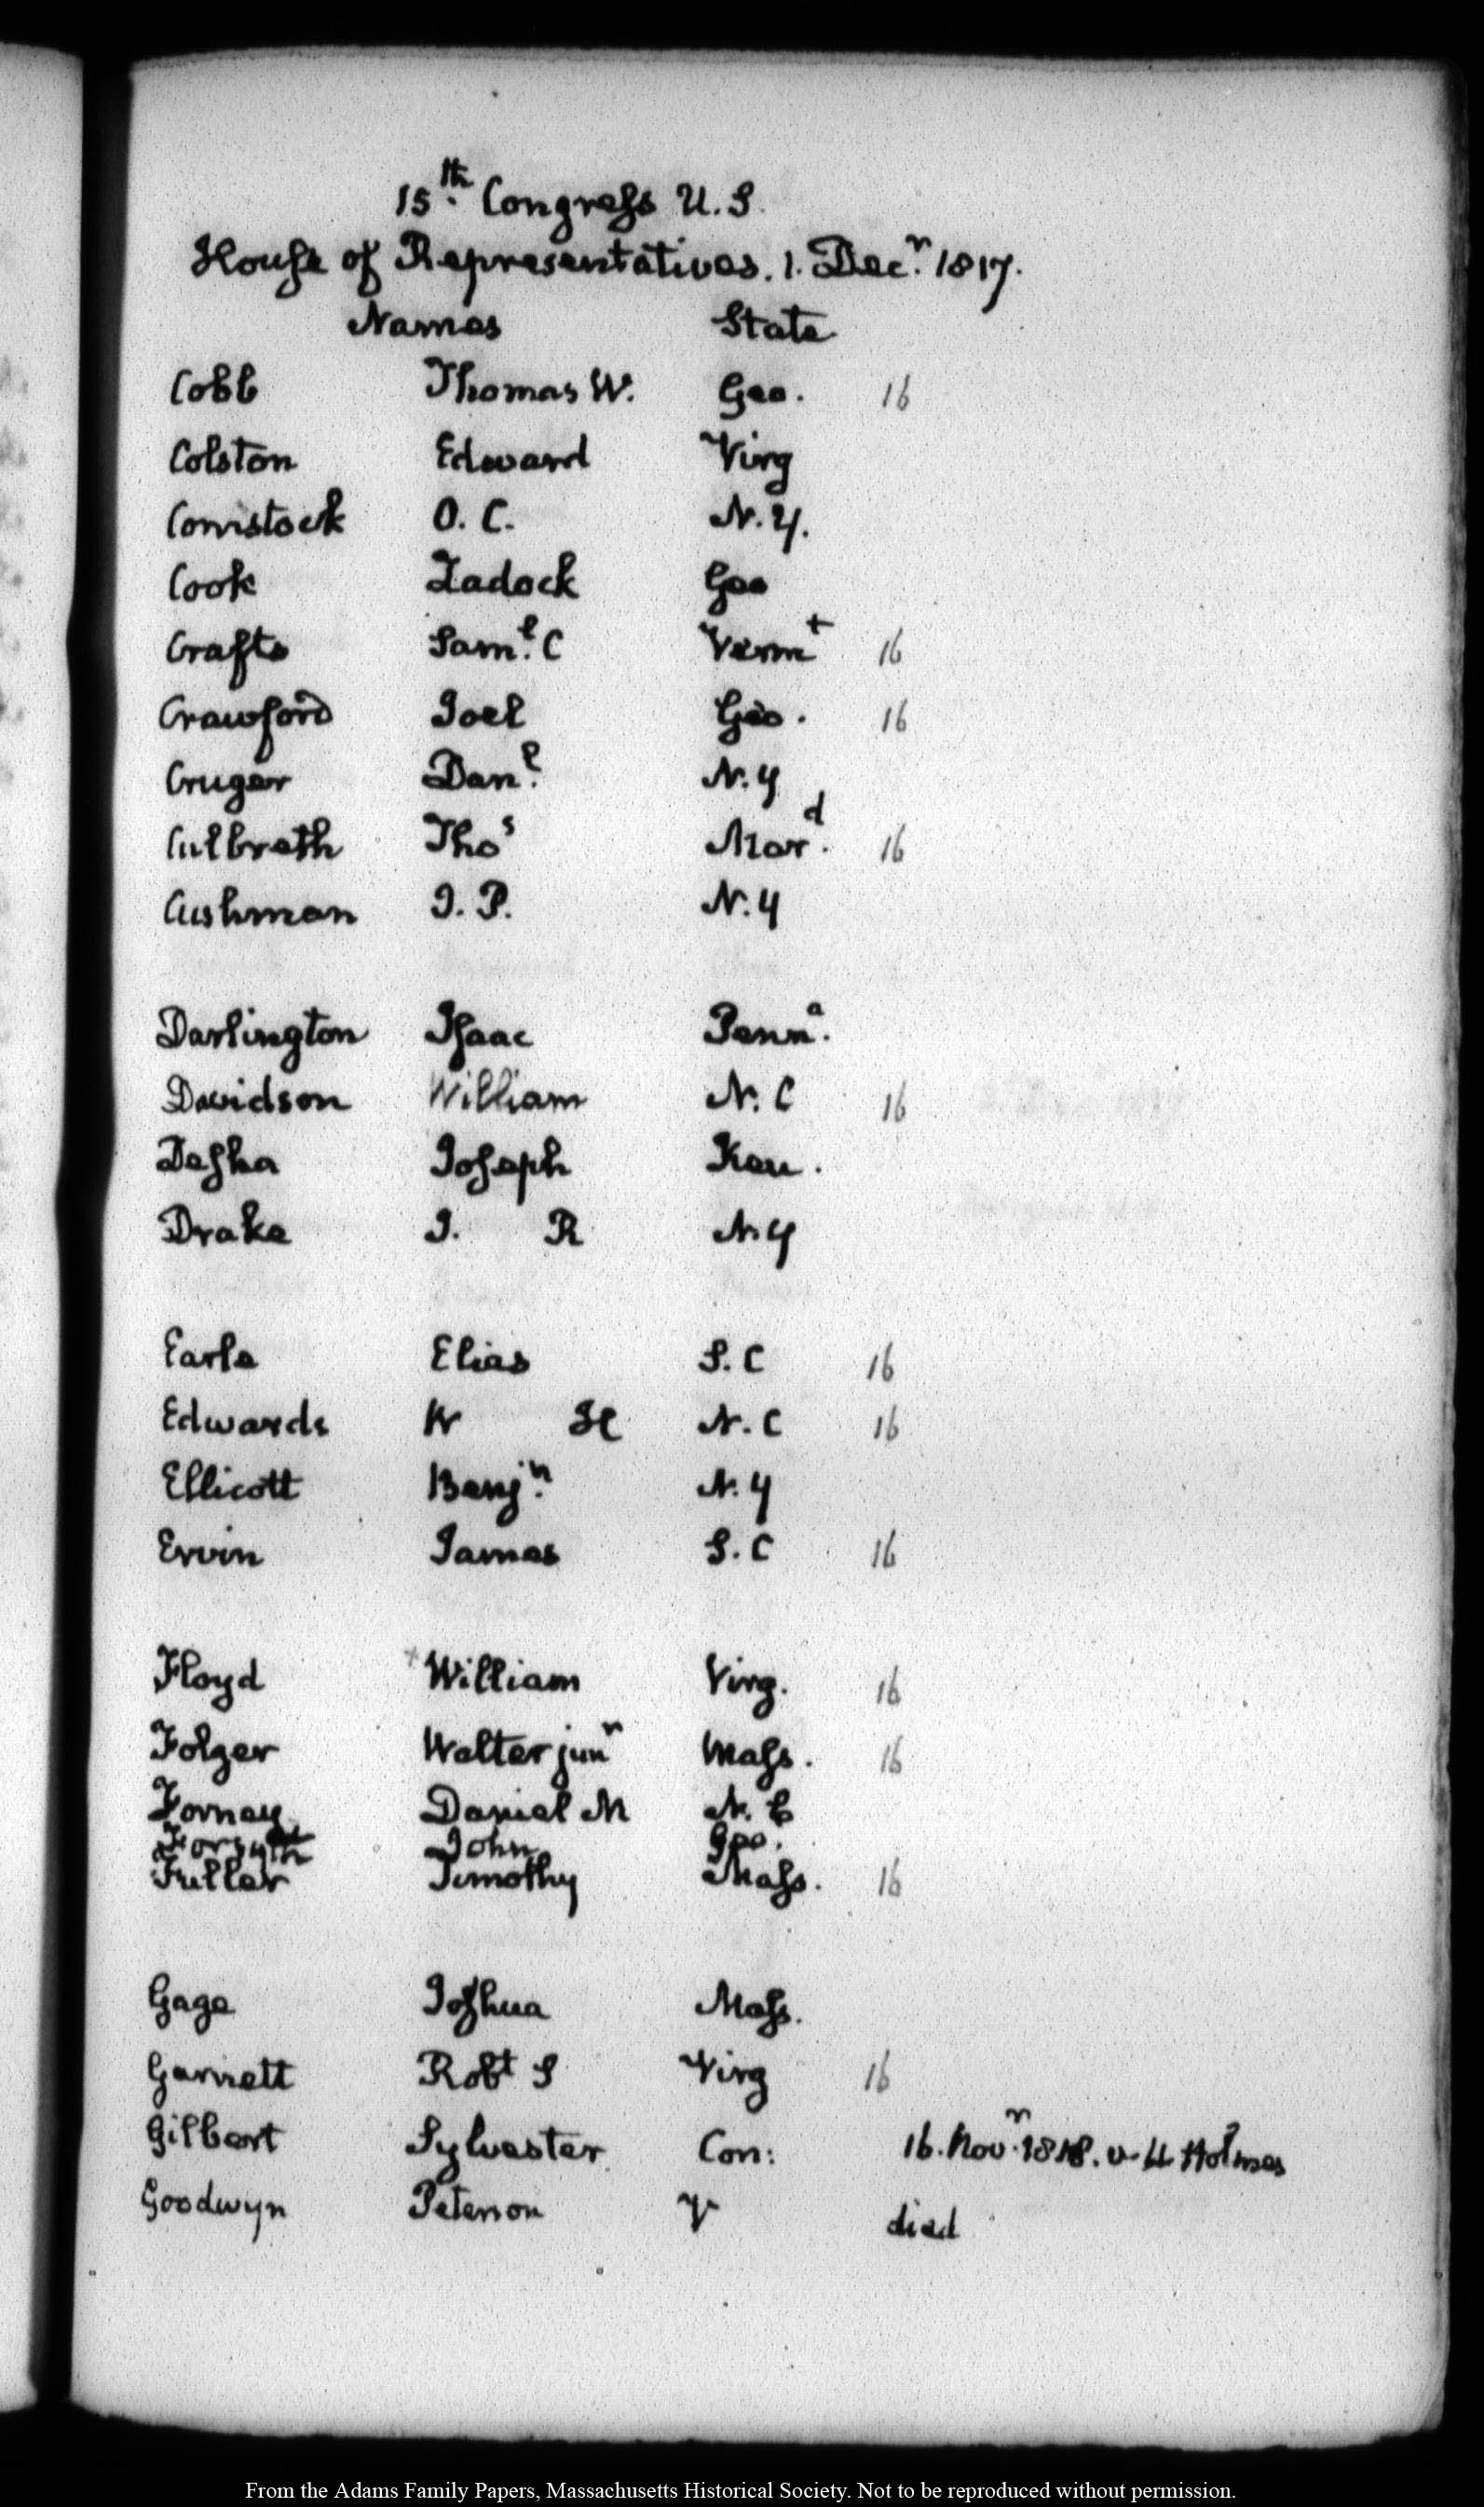 15th. Congress U.S.
House of Representatives. 1. Decr. 1817.
Names State
Cobb Thomas W. Geo. 16
Colston Edward Virg
Comstock O. C. N.Y.
Cook Zadock Geo
Crafts Saml. C Vermt 16
Crawford Joel Geo. 16
Cruger Danl. N.Y
Culbreth Thos Mard. 16
Cushman J. P. N.Y
Darlington Isaac Penna.
Davidson William N. C 16
Desha Joseph Ken.
Drake J. R N.Y
Earle Elias S. C 16
Edwards W H N. C 16
Ellicott Benjn. N. Y
Ervin James S. C 16
Floyd + William Virg. 16
Folger Walter junr Mass. 16
Forney Daniel M N. C
Forsyth John Geo.
Fuller Timothy Mass. 16
Gage Joshua Mass.
Garnett Robt S Virg 16
Gilbert Sylvester Con: 16. Novr. 1818. v. U. Holmes
Goodwyn Peterson V died
From the Adams Family Papers, Massachusetts Historical Society. Not to be reproduced without permission.